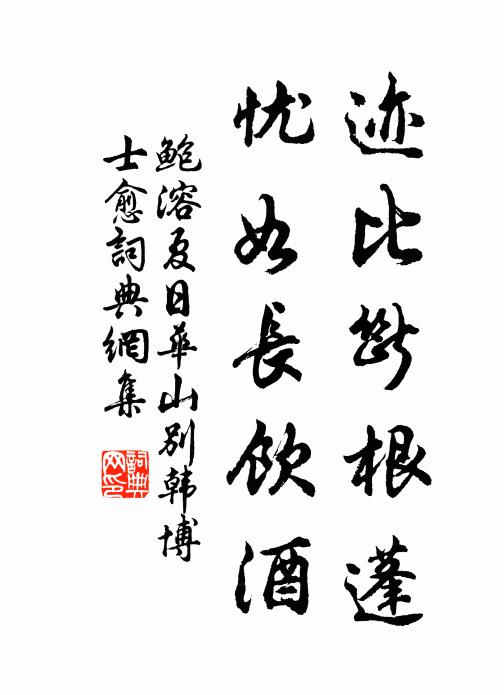 迹比斷根蓬
忧如長饮酒
鲍溶夏日華山别韩博
士愈詞典網集
詞典
网印